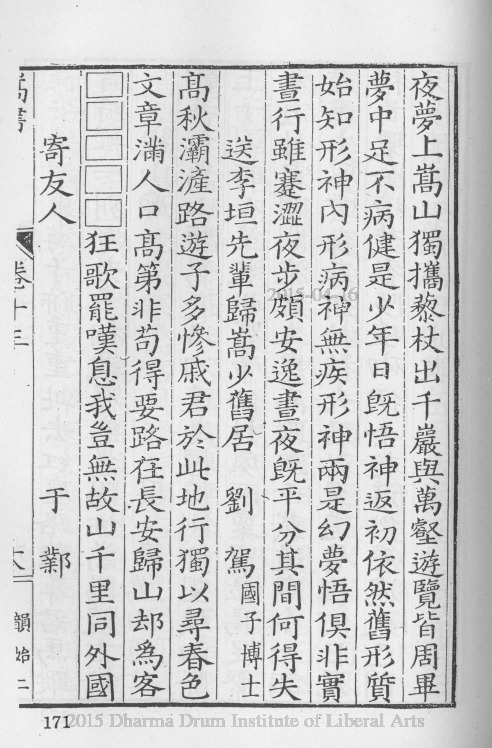 夜夢上嵩山獨攜藜杖出千巖與萬壑遊覽皆周畢
夢中足不病健是少年日旣悟神返初依然舊形質
始知形神內形病神無疾形神兩是幻夢悟俱非實
晝行雖蹇澀夜步頗安逸晝夜旣平分其間何得失
送李垣先輩歸嵩少舊居 劉駕 國子博士
高秋灞滻路遊子多慘戚君於此地行獨以尋春色
文章滿人口高第非苟得要路在長安歸山却為客
□□□□□狂歌罷嘆息我豈無故山千里同外國
寄友人 于鄴
卷十三
韻始二
171
2015 Dharma Drum Institute of Liberal Arts